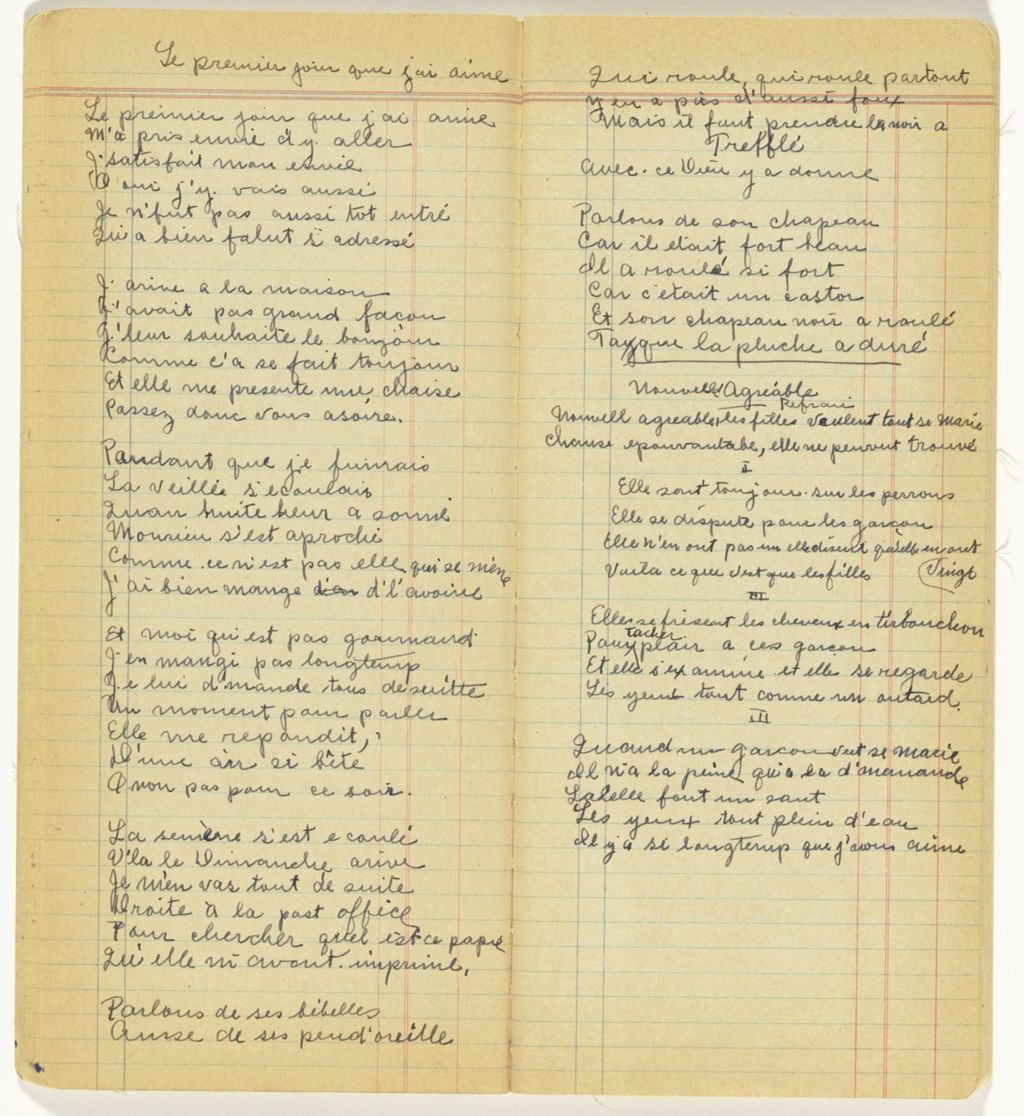 Le premier jour que j'ai aime
Le premier jour que j'ai aimé
M'a pris envie d'y aller
J'satisfait mon envie
O oui j'y. vais aussi
Je n'fut pas aussi tot entré
Qui a bien falut s'adressé
J'arive a la maison
J'avait pas grand facon
J'leur souhaite le bonjour
Comme c'a se fait toujour
Et elle me presente une chaise
Passez donc vous asoire.
Pandant que je fumais
La veillé s'ecoulais
Quan huite heur a sonné
Monsieu s'est aproché
Comme ce n'est pas elle qui se mène
J'ai bien mange d'l'avoine
Et moi qu'est pas gourmand
J'en mangi pas longtemp
Je lui d'mande tous de suitte
Un moment pour parler
Elle me repondit,
D'une air si bête
O non pas pour ce soir.
La semène s'est ecoulé
V'la le Dimanche arivé
Je m'en vas tout de suite
Droite à la post office
Pour chercher quel est ce papié
Qu'elle m'avait imprimé,
Parlons de ses bébelles
Ausse de ses pend'oreille
Qui roule, qui roule partout
Y en a pas d'aussi foux
Mais il faut prendre le noir a
Trefflé
Avec ce Dieu y a donne
Parlons de son chapeau
Car il etait fort beau
Il a roulé si fort
Car c'etait un castor
Et son chapeau noir a roulé
Tayque la pluche a duré
Nouvell Agréable
Refrain
Nouvell agreable, les filles veulent tout se marié
Chause epouvantabe, elle ne peuvent trouvé
I
Elle sont toujour sur les perrons
Elle se dispute pour les garçon
Elle n'en ont pas un elle disent qu'elle en ont
Voila ce que c'est que les filles (Vingt
II
Elles se frisent les cheveux en tirbouchon
Pour tacher plair a ces garçon
Et elle s'examine et elle se regarde
Les yeux tout comme un outard.
III
Quand un garçon veut se marié
Il n'a la peine qu'a la d'manande
La belle font un saut
Les yeux tout plein d'eau
Il y a si longtemp que j'avais aimé